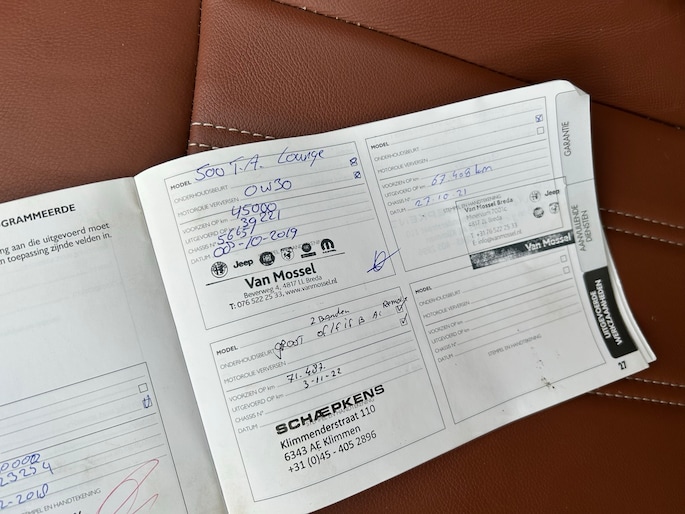 GRAMMEERDE
ng aan die uitgevoerd moet
n toepassing zijnde velden in.
00002
23254
2-2018
STEMPEL EN HANDTEKENING
MODEL 500 T.A. Lounge
ONDERHOUDSBEURT
MOTOROLIE VERVERSEN 0W30
VOORZIEN OP km 45000
UITGEVOERD OP km 39221
CHASSIS N° 56657
DATUM -10-2019
Jeep
Van Mossel
Beverweg 4, 4817 LL Breda
T: 076 522 25 33, www.vanmossel.nl
MODEL
ONDERHOUDSBEURT
MOTOROLIE VERVERSEN
VOORZIEN OP km
UITGEVOERD OP km 67 408 km
CHASSIS N°
DATUM 27 10 21
Van Mossel Breda
Jeep
Breda
T. +31 76 522 25 33
Van Mossel
MODEL 2 Banden Remolie
ONDERHOUDSBEURT groot
MOTOROLIE VERVERSEN
VOORZIEN OP km
UITGEVOERD OP km 71.487
CHASSIS N° 3-11-22
DATUM
SCHÆPKENS
Klimmenderstraat 110
6343 AE Klimmen
+31 (0)45 - 405 2896
MODEL
ONDERHOUDSBEURT
MOTOROLIE VERVERSEN
VOORZIEN OP km
UITGEVOERD OP km
CHASSIS N°
DATUM
STEMPEL EN HANDTEKENING
GARANTIE
AANVULLENDE
DIENSTEN
UITGEVOERDE
WERKZAAMHEDEN
27